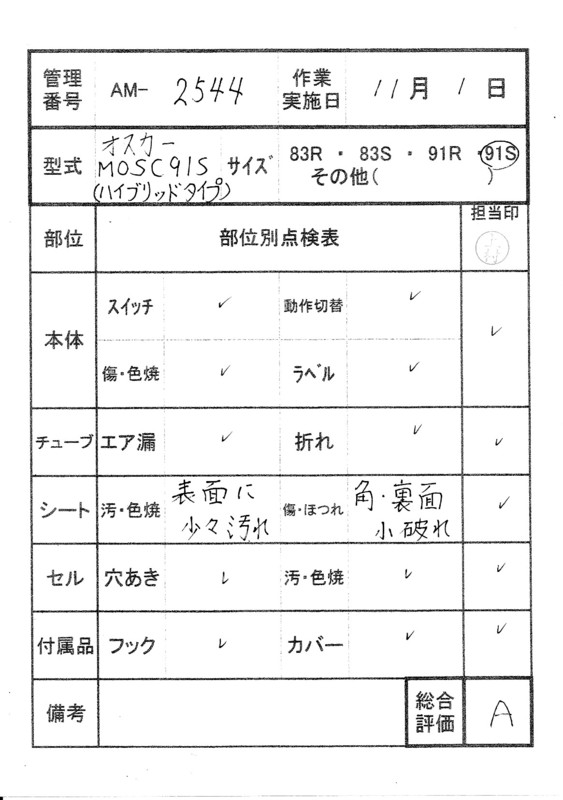 管理番号 AM- 2544 作業実施日 11月 1日
型式 オスカー MOSC91S (ハイブリッドタイプ) サイズ 83R ・ 83S ・ 91R ・ 91S
その他( )
部位 部位別点検表 担当印
本体 スイッチ ✓ 動作切替 ✓ ✓
傷・色焼 ✓ ラベル ✓
チューブ エア漏 ✓ 折れ ✓ ✓
シート 汚・色焼 表面に少々汚れ 傷・ほつれ 角・裏面小破れ ✓
セル 穴あき ✓ 汚・色焼 ✓ ✓
付属品 フック ✓ カバー ✓ ✓
備考 総合評価 A